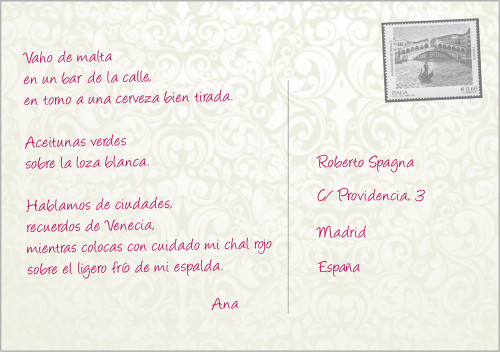 Vaho de malta
en un bar de la calle,
en torno a una cerveza bien tirada.
Aceitunas verdes
sobre la loza blanca.
Hablamos de ciudades,
recuerdos de Venecia,
mientras colocas con cuidado mi chal rojo
sobre el ligero frío de mi espalda.
Ana
ITALIA
€ 0,60
Roberto Spagna
C/ Providencia, 3
Madrid
España